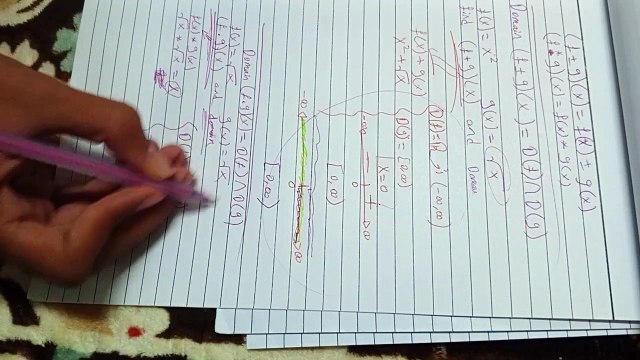 (f ± g)(x) = f(x) ± g(x)
(f * g)(x) = f(x) * g(x)
Domain (f ± g)(x) = D(f) ∩ D(g)
f(x) = x² g(x) = √x
find (f+g)(x) and Domain
f(x) + g(x)
x² + √x
D(f) = R ; (-∞, ∞)
D(g) = [0, ∞)
x = 0
-∞ 0 ∞
[0, ∞)
-∞ 0 ∞
[0, ∞)
Domain (f.g)(x) = D(f) ∩ D(g)
f(x) = √x g(x) = √x
(f.g)(x) and domain
f(x) * g(x)
√x * √x = x